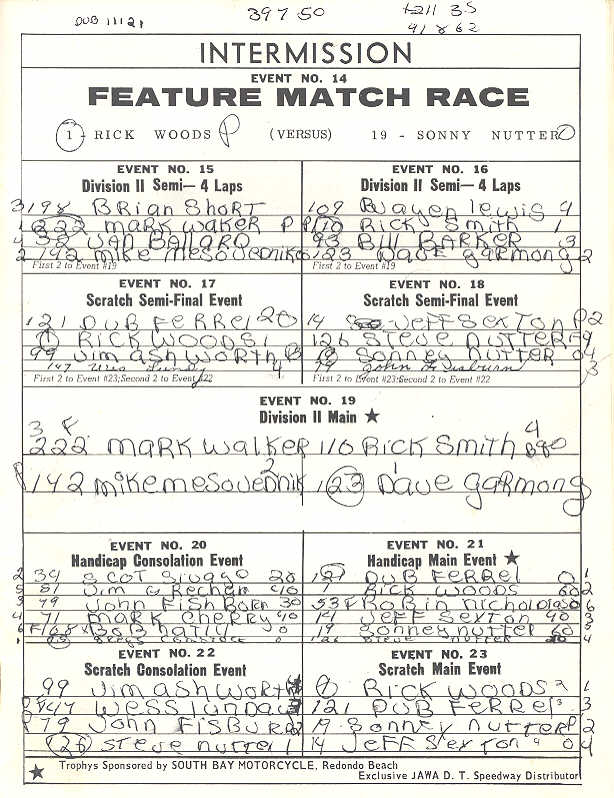 DUB 11121 397 50 3.5
41 8 62
INTERMISSION
EVENT NO. 14
FEATURE MATCH RACE
1 - RICK WOODS P (VERSUS) 19 - SONNY NUTTER O
EVENT NO. 15
Division II Semi— 4 Laps
3 198 BRian ShoRT
1 222 maRk waker P
4 52 VAN BALLARD
2 142 mike mesovednik
First 2 to Event #19
EVENT NO. 16
Division II Semi— 4 Laps
109 wayen lewis 4
P 110 Rick Smith 1
93 Bill BARKER 3
123 Dave Garmong 2
First 2 to Event #19
EVENT NO. 17
Scratch Semi-Final Event
121 DUB FERREl 2 0
1 RICK WOODS 1
99 Jim ASh WoRTh
147 4
First 2 to Event #23;Second 2 to Event #22
EVENT NO. 18
Scratch Semi-Final Event
14 JEFF SEXTON P 2
126 STEVE NUTTER F 9
19 SONNEY NUTTER 04
79 John 3
First 2 to Event #23:Second 2 to Event #22
EVENT NO. 19
Division II Main ★
3 F 4
222 mark walker 110 Rick Smith
2 1
P 142 mike mesovednik 123 Dave garmong
EVENT NO. 20
Handicap Consolation Event
2 34 SCOT 20
5 81 Jim 40
3 79 John FishBorn 30
4 71 mark Cherry 40
6 F
0
EVENT NO. 21
Handicap Main Event ★
121 DUB FERREl 0 1
1 RICK WOODS 60 2
53 F ROBIN 6
14 JEFF SEXTON 40 3
19 Sonney nutter 60 5
126 STEVE NUTTER 20 4
EVENT NO. 22
Scratch Consolation Event
99 Jim ASh WORTH
WESS
P 79 John FISBURN 2
126 STEVE NUTTER 1
EVENT NO. 23
Scratch Main Event
1 RICK WOODS 1
121 DUB FERREl 3
19 Sonney NUTTER P 2
14 JEFF SEXTON 0 4
★ Trophys Sponsored by SOUTH BAY MOTORCYCLE, Redondo Beach
Exclusive JAWA D. T. Speedway Distributor